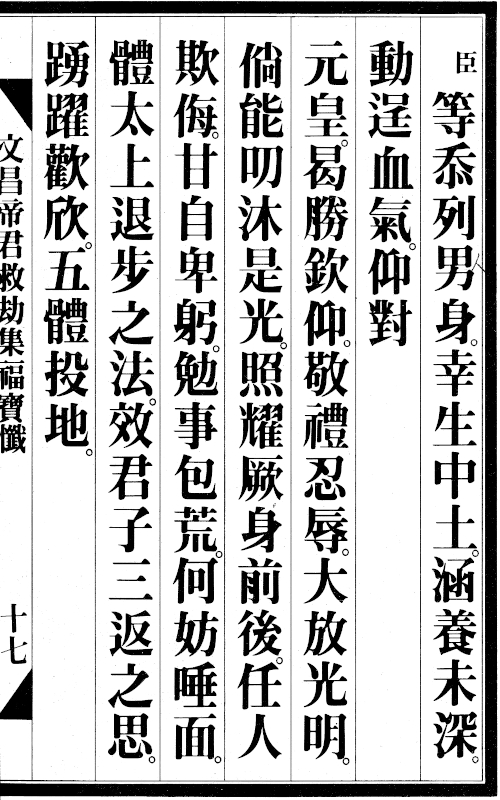 臣等忝列男身。幸生中土。涵養未深。
動逞血氣。仰對
元皇。曷勝欽仰。敬禮忍辱。大放光明。
倘能叨沐是光。照耀厥身前後。任人
欺侮。甘自卑躬。勉事包荒。何妨唾面。
體太上退步之法。效君子三返之思。
踴躍歡欣。五體投地。
文昌帝君救劫集福寶懺
十七